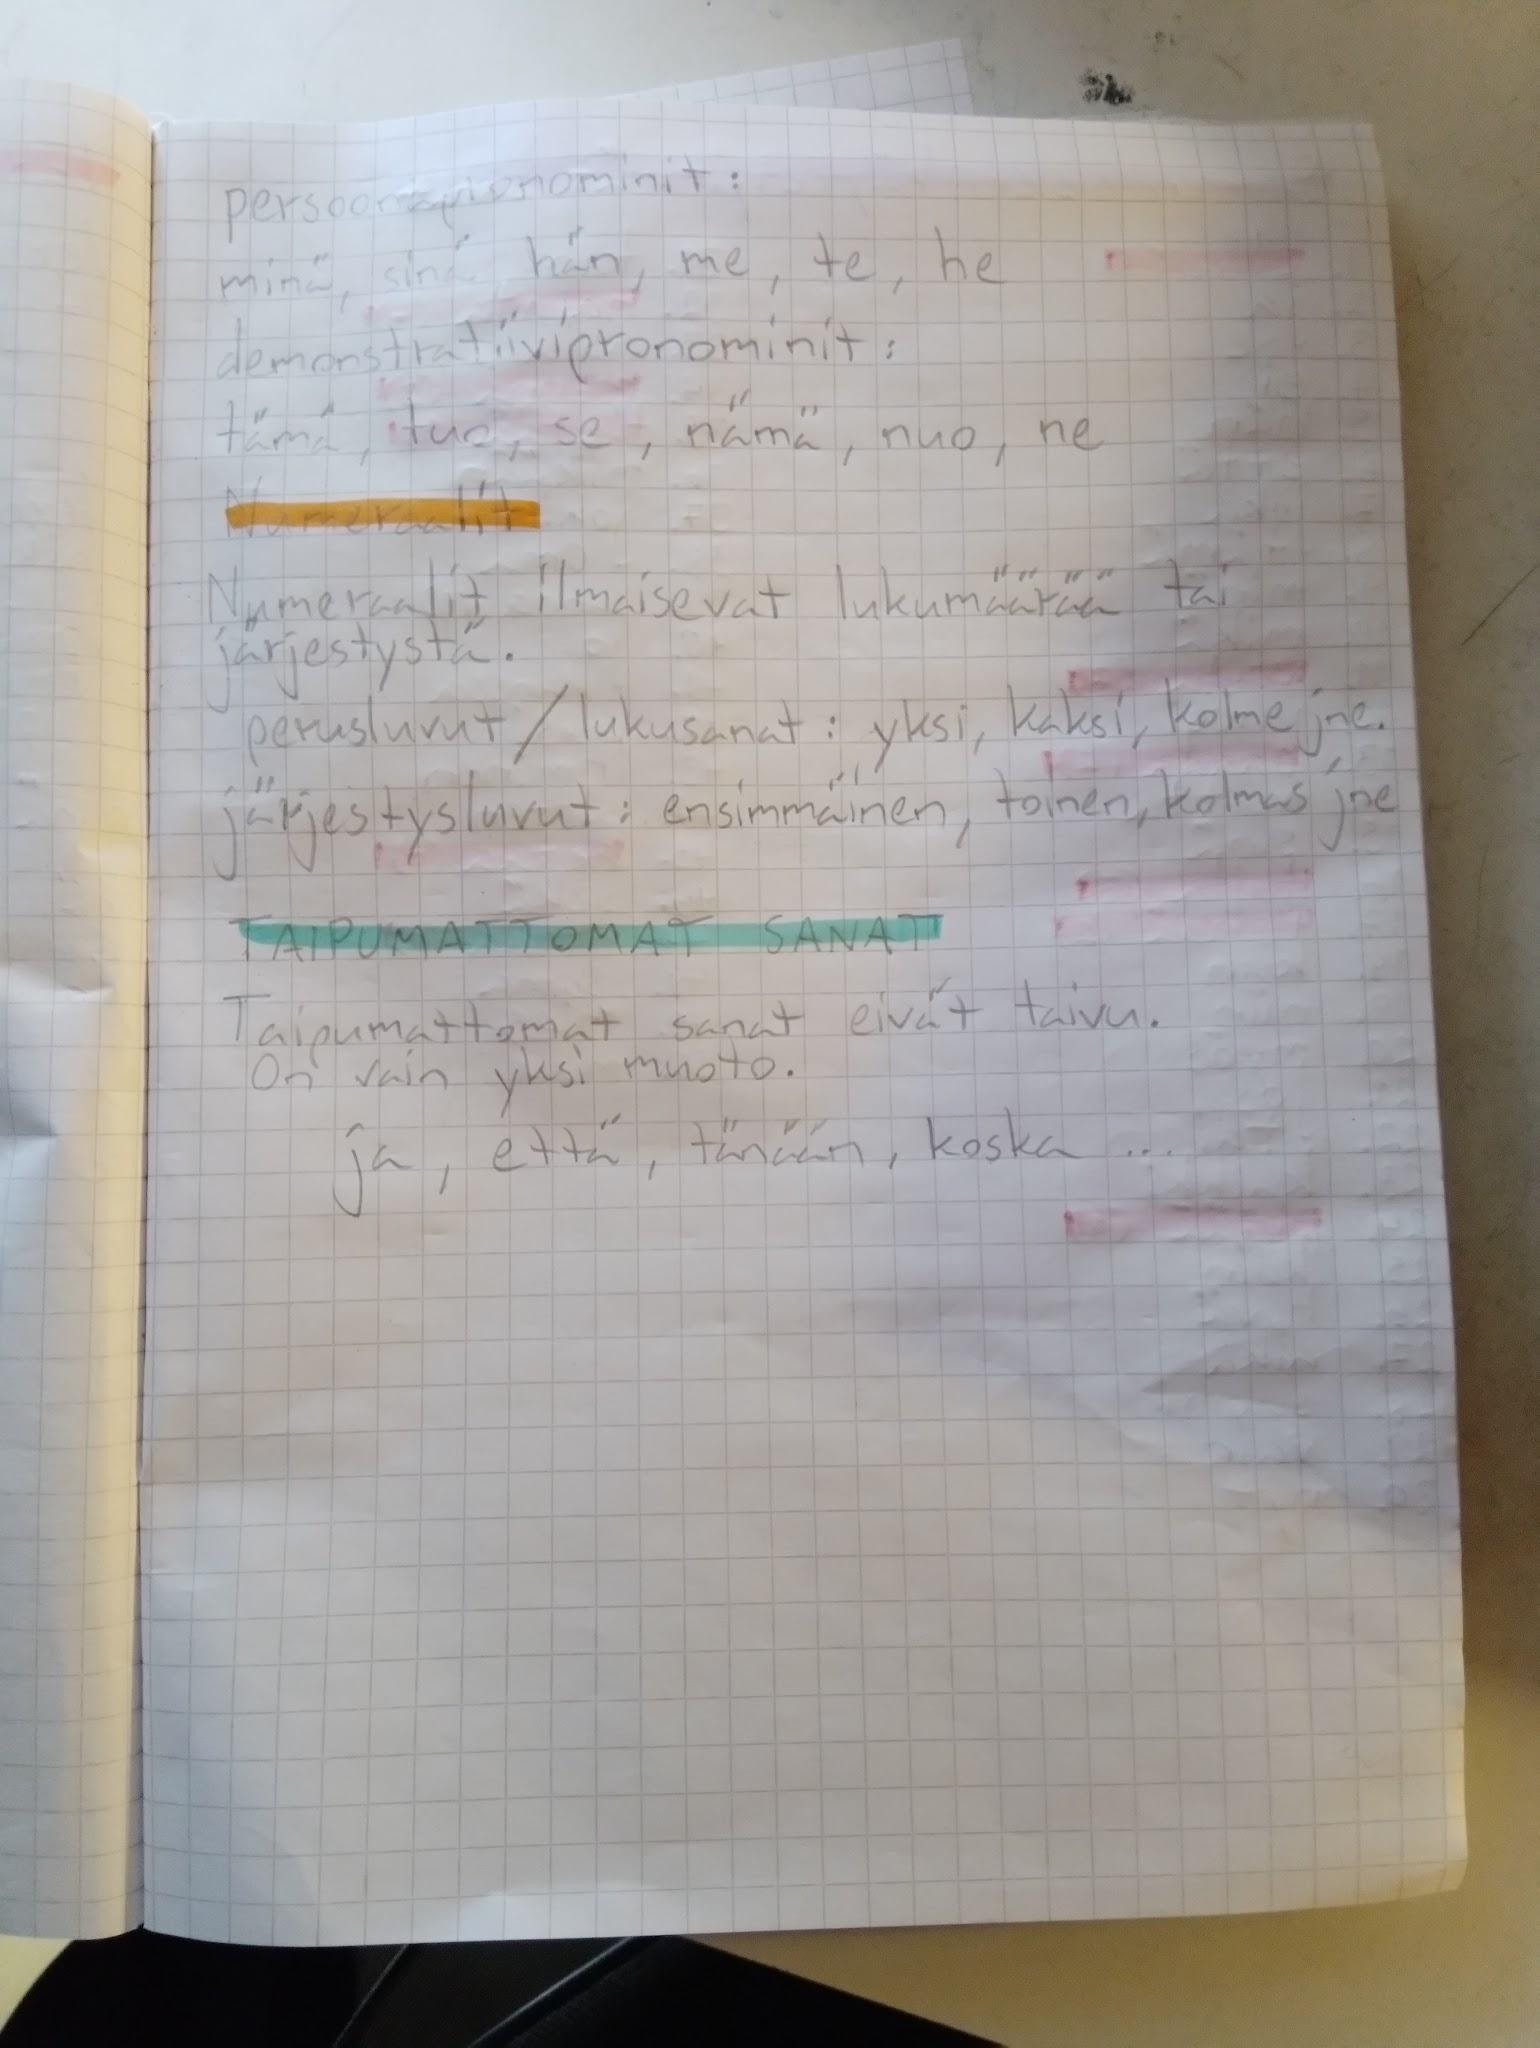 persoonapronominit:
minä, sinä hän, me, te, he
demonstratiivipronominit:
tämä, tuo, se, nämä, nuo, ne
Numeraalit
Numeraalit ilmaisevat lukumäärää tai
järjestystä.
perusluvut/lukusanat: yksi, kaksi, kolme jne.
järjestysluvut: ensimmäinen, toinen, kolmas jne
TAIPUMATTOMAT SANAT
Taipumattomat sanat eivät taivu.
On vain yksi muoto.
ja, että, tänään, koska ...